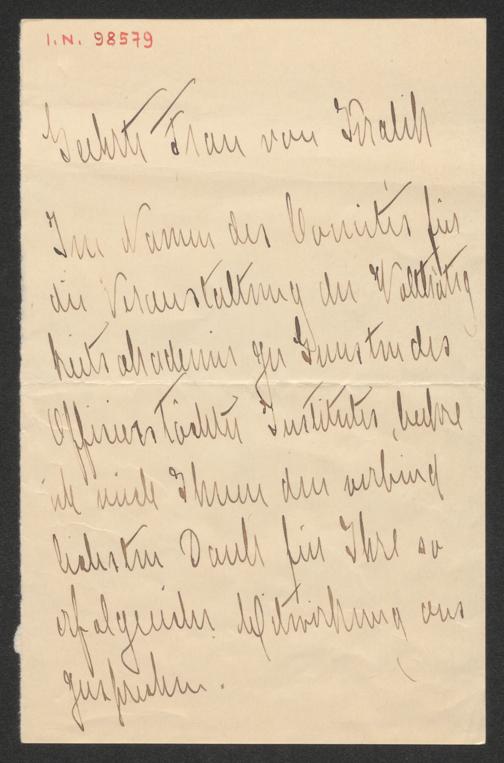 I.N. 98579
Geehrte Frau von Kralik
Im Namen des Comités für
die Veranstaltung der Wolthätig
keitsakademie zu Gunsten des
Officierstöchter Institutes, beehre
ich mich Ihnen den verbind
lichsten Dank für Ihre so
erfolgreiche Mitwirkung aus
zusprechen.